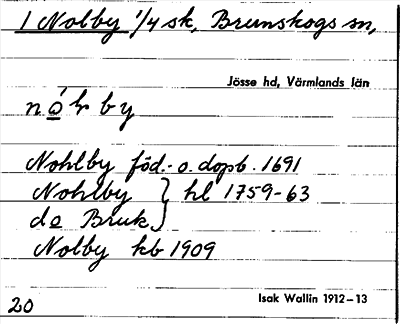 1 Nolby 1/4 sk, Brunskogs sn,
Jösse hd, Värmlands län
nólby
Nohlby föd.- o. dopb. 1691
Nohlby } hl 1759-63
do Bruk }
Nolby kb 1909
20
Isak Wallin 1912-13